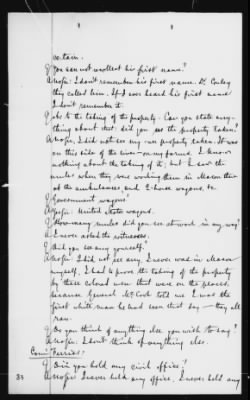 certain.
Q. You can not recollect his first name?
A. No sir. I don't remember his first name. Dr. Conley
they called him. If I ever heard his first name
I don't remember it.
Q. As to the taking of the property. Can you state any-
thing about that. did you see the property taken?
A. No sir. I did not see my own property taken. It was
on this side of the river on my farm. I know
nothing about the taking of it, but I saw the
mules when they was working them in Macon then
at the ambulances, and 2-horse wagons, &c.
Q. Government wagons?
A. Yes sir. United States wagons.
Q. How many mules did you see at work in any way?
A. I never asked the witnesses.
Q. Did you see any yourself?
A. No sir. I did not see any. I never was in Macon
myself. I had to prove the taking of the property
by these colored men that was on the process,
because General McCook told me I was the
first white man he had seen that day - they all
ran.
Q. Do you think of anything else you wish to say?
A. No sir. I don't think of anything else.
Com'r Ferriss:
Q. Did you hold any civil office?
A. No sir. I never held any office. I never held any
38